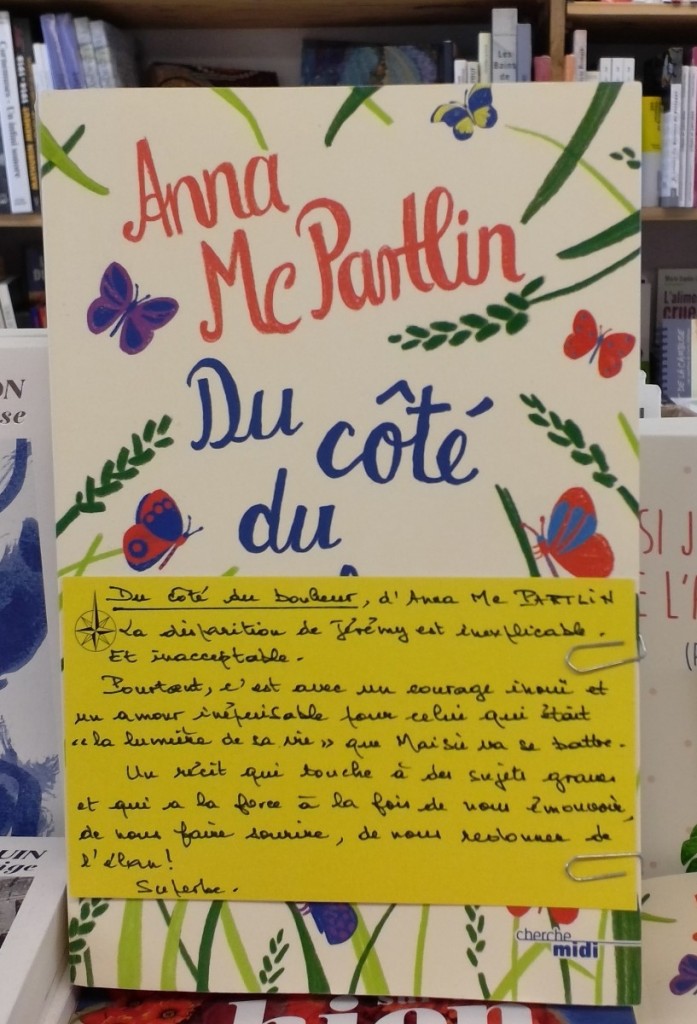 Anna
McPartlin
Du côté
du
Du côté du bonheur, d'Anna Mc PARTLIN
La disparition de Jérémy est inexplicable.
Et inacceptable.
Pourtant, c'est avec un courage inouï et
un amour inépuisable pour celui qui était
"la lumière de sa vie" que Maisie va se battre.
Un récit qui touche à des sujets graves
et qui a la force à la fois de nous émouvoir,
de nous faire sourire, de nous redonner de
l'élan!
Superbe.
cherche
midi
Les
L'alim
crue
SI J
E L'A
ON
se
UIN
ige
bien